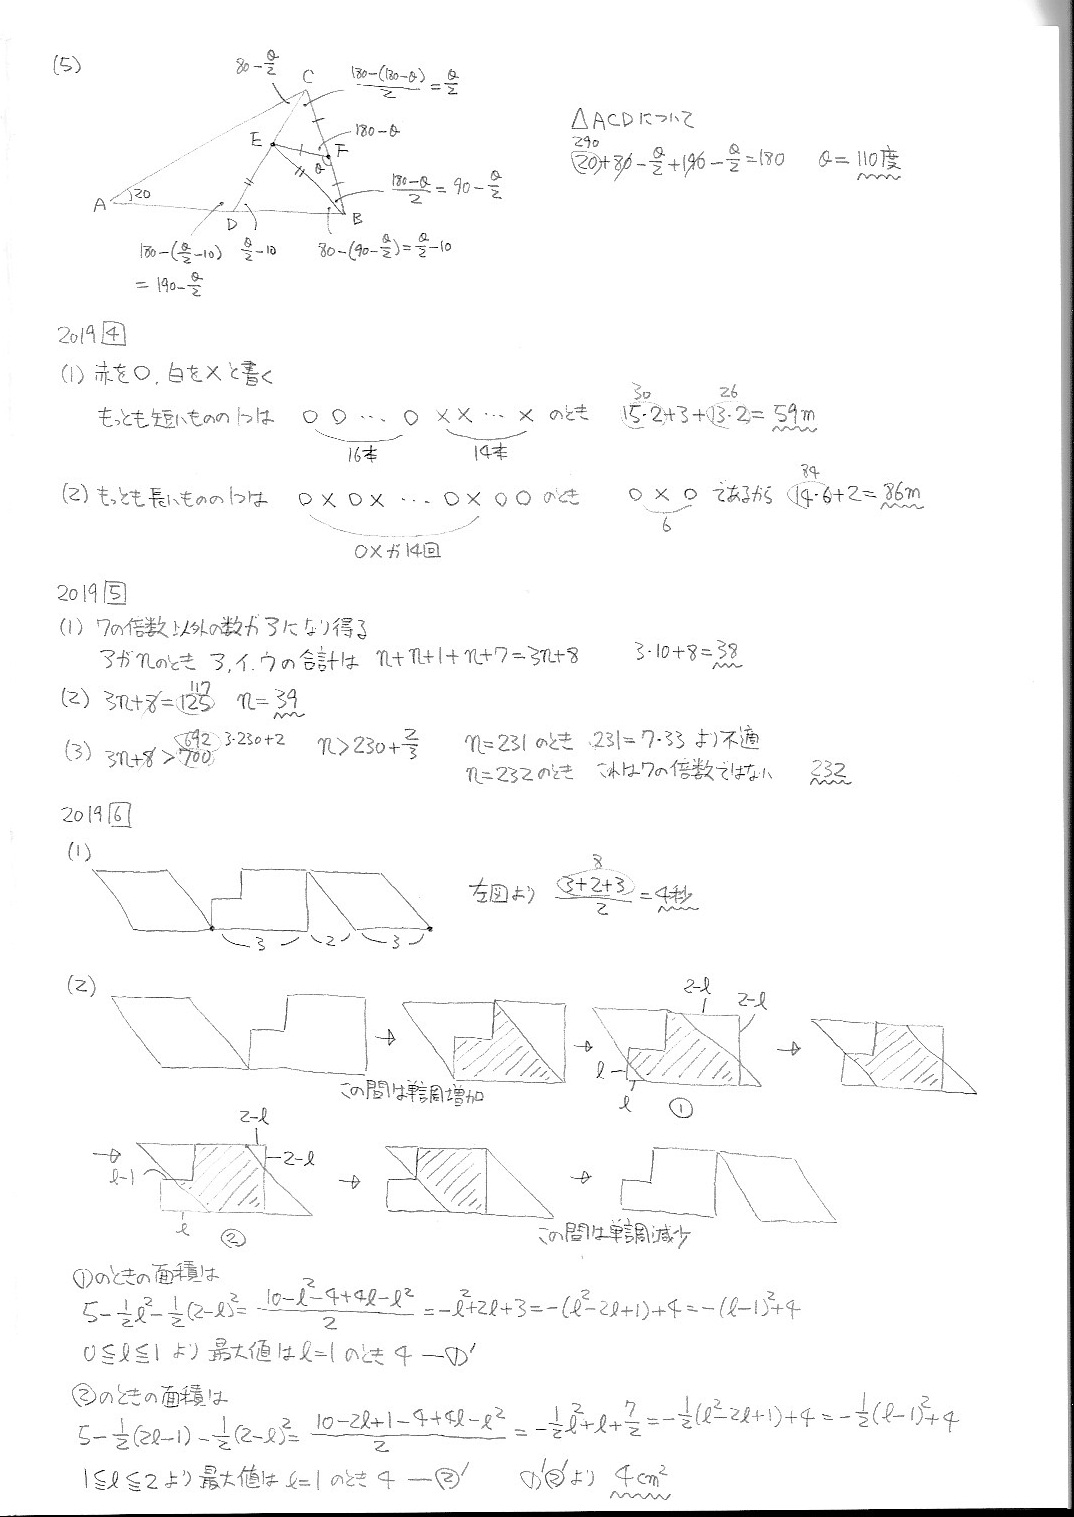 (5)
80-θ/2
C
(180-(180-θ))/2=θ/2
E
180-θ
F
θ
A
20
D
B
(180-θ)/2=90-θ/2
180-(θ/2-10)
=190-θ/2
θ/2-10
80-(90-θ/2)=θ/2-10
△ACDについて
290
20+80-θ/2+190-θ/2=180 θ=110度
2019 4
(1) 赤を○, 白を×と書く
もっとも短いものの1つは ○ ○ … ○ × × … × のとき
16本 14本
30 26
15・2+3+13・2=59m
(2) もっとも長いものの1つは ○×○× … ○×○○ のとき
○×が14回
○×○ であるから
6
84
14・6+2=86m
2019 5
(1) 7の倍数以外の数がアになり得る
アがnのとき ア,イ,ウの合計は n+n+1+n+7=3n+8 3・10+8=38
117
(2) 3n+8=125 n=39
692 3・230+2
(3) 3n+8>700 n>230+2/3 n=231のとき 231=7・33より不適
n=232のとき これは7の倍数ではない 232
2019 6
(1)
3 2 3
8
左図より (3+2+3)/2=4秒
(2)
この間は単調増加
2-l
2-l
l
l
①
2-l
2-l
l-1
l
②
この間は単調減少
①のときの面積は
5-1/2l²-1/2(2-l)²=(10-l²-4+4l-l²)/2=-l²+2l+3=-(l²-2l+1)+4=-(l-1)²+4
0≦l≦1より最大値はl=1のとき4 ―①′
②のときの面積は
5-1/2(2l-1)-1/2(2-l)²=(10-2l+1-4+4l-l²)/2=-1/2l²+l+7/2=-1/2(l²-2l+1)+4=-1/2(l-1)²+4
1≦l≦2より最大値はl=1のとき4 ―②′ ①′②′より 4cm²